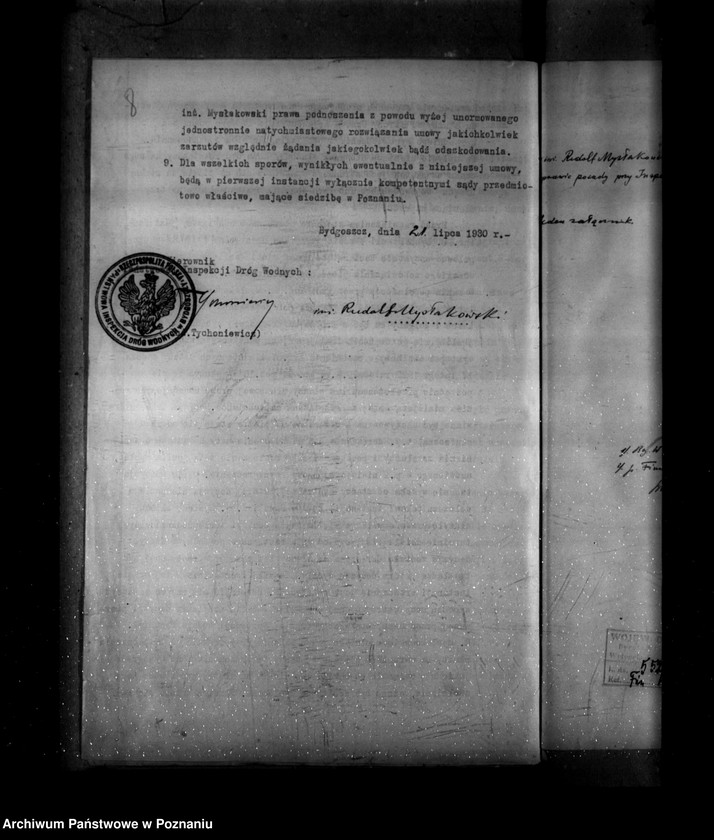 8
inż. Mysłakowski prawa podnoszenia z powodu wyżej unormowanego
jednostronnie natychmiastowego rozwiązania umowy jakichkolwiek
zarzutów względnie żądania jakiegokolwiek bądź odszkodowania.
9. Dla wszelkich sporów, wynikłych ewentualnie z niniejszej umowy,
będą w pierwszej instancji wyłącznie kompetentnymi sądy przedmio-
towo właściwe, mające siedzibę w Poznaniu.
Bydgoszcz, dnia 21 lipca 1930 r.-
ierownik
Inspekcji Dróg Wodnych :
inż. Rudolf Mysłakowski
.Tychoniewicz)
RZECZPOSPOLITA POLSKA
INSPEKCJA DRÓG WODNYCH W
Rudolf Mysłakow
posady przy Inspe
załącznik.
WOJEW
Fin
Archiwum Państwowe w Poznaniu